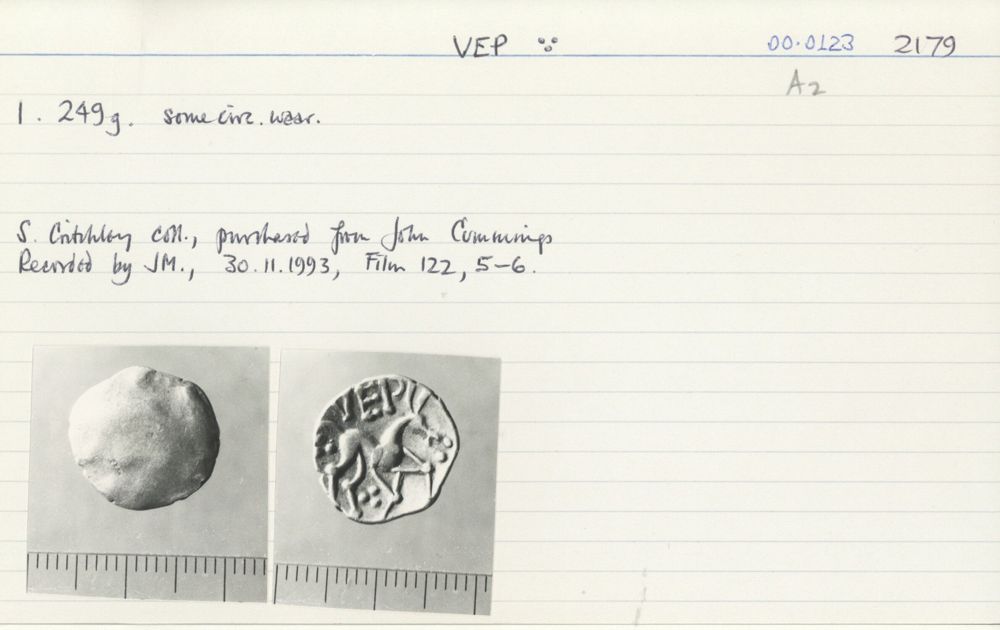 VEP 00.0123 2179
A2
1.249g. some circ. wear.
S. Critchley coll., purchased from John Cummings
Recorded by JM., 30.11.1993, Film 122, 5-6.
VEPII